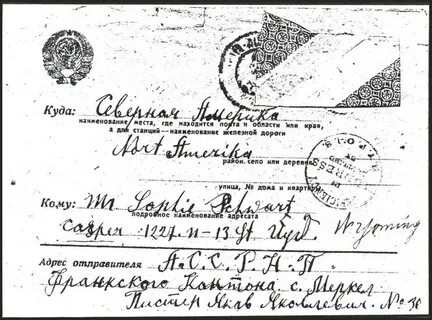 Куда: Северная Америка
наименование места, где находится почта и области или края,
а для станций—наименование железной дороги
Nort Amerika
район, село или деревня
улица, № дома и квартиры
Кому: Mr Sophie Schwart
подробное наименование адресата
Casper 1227 N-13 St Wyoming
Адрес отправителя А.С.С.Р.Н.П
Франкского Кантона. с. Меркел
Пистер Яков Яковлевич. № 36